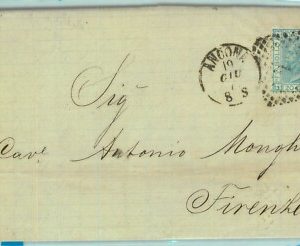 ANCONA
19
GIU
8 S
Sig
Cav. Antonio Mongh
Firenze